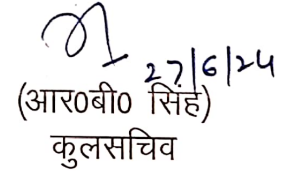 27/6/24
(आर0बी0 सिंह)
कुलसचिव